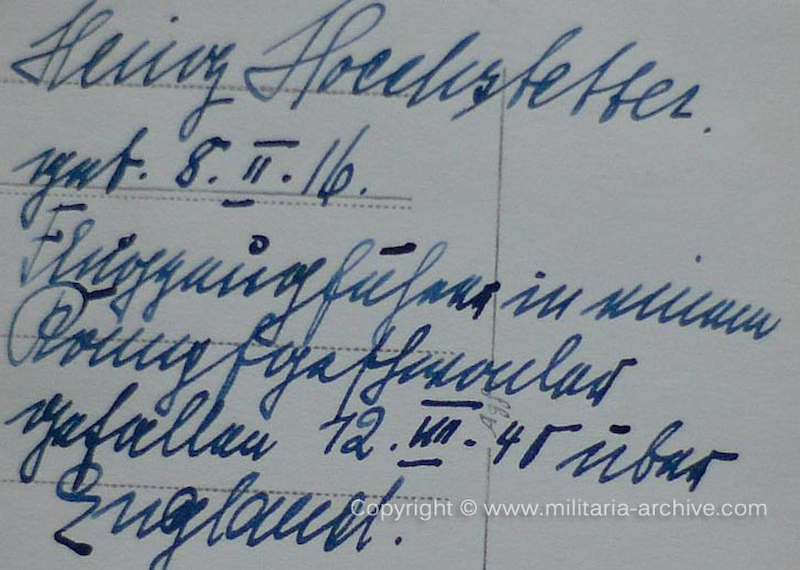 Heinz Hoechstetter.
geb. 8. II. 16.
Flugzeugführer in einem
Kampfgeschwader
gefallen 12. VIII. 40 über
England.
Copyright © www.militaria-archive.com